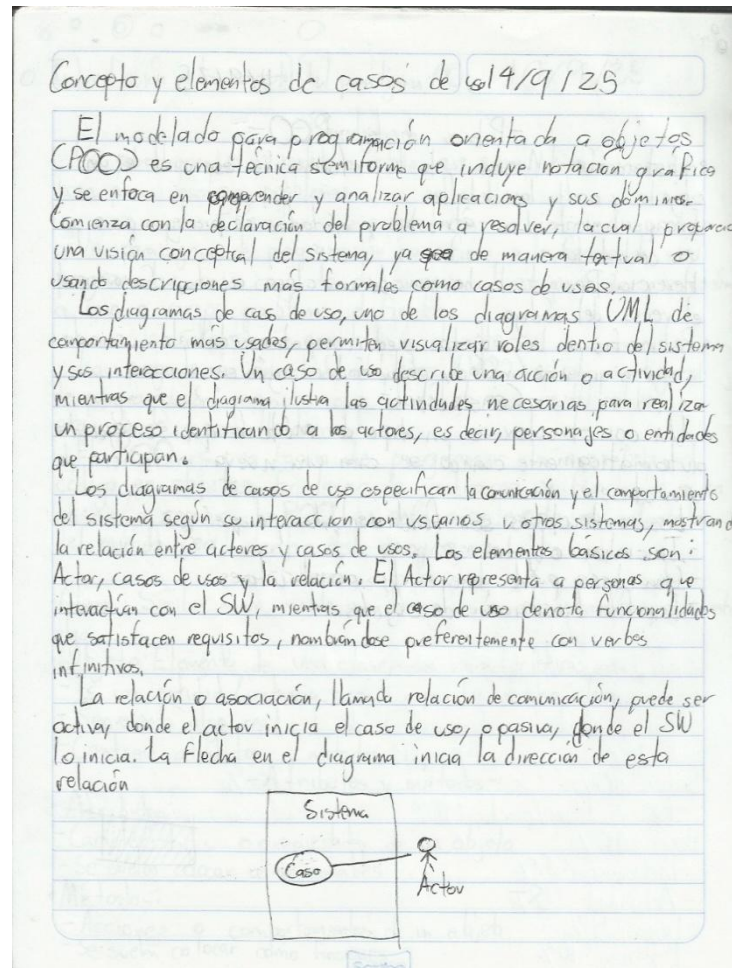 Concepto y elementos de casos de uso 14/9/25
El modelado para programación orientada a objetos
(POO) es una técnica semiforme que incluye notación gráfica
y se enfoca en comprender y analizar aplicacions y sus dominios.
Comienza con la declaración del problema a resolver, la cual proporcio
una visión conceptual del sistema, ya sea de manera textual o
usando descripciones más formales como casos de usos.
Los diagramas de caso de uso, uno de los diagramas UML de
comportamiento más usados, permiten visualizar roles dentro del sistema
y sus interacciones. Un caso de uso describe una acción o actividad,
mientras que el diagrama ilustra las actividades necesarias para realizar
un proceso identificando a los actores, es decir, personajes o entidades
que participan.
Los diagramas de casos de uso especifican la comunicación y el comportamiento
del sistema según su interacción con usuarios u otros sistemas, mostrando
la relación entre actores y casos de usos. Los elementos básicos son:
Actor, casos de usos y la relación. El Actor representa a personas que
interactúan con el SW, mientras que el caso de uso denota funcionalidades
que satisfacen requisitos, nombrándose preferentemente con verbos
infinitivos.
La relación o asociación, llamada relación de comunicación, puede ser
activa, donde el actor inicia el caso de uso, o pasiva, donde el SW
lo inicia. La flecha en el diagrama inicia la dirección de esta
relación
Sistema
Caso
Actor